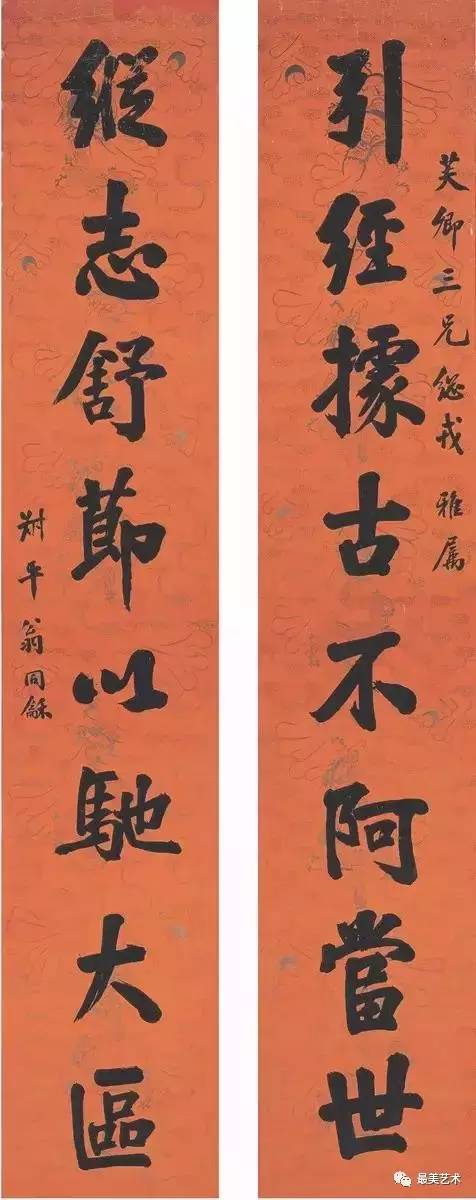 芙卿三兄緫戎 雅属
引經據古不阿當世
縱志舒節以馳大區
叔平翁同龢
最美艺术